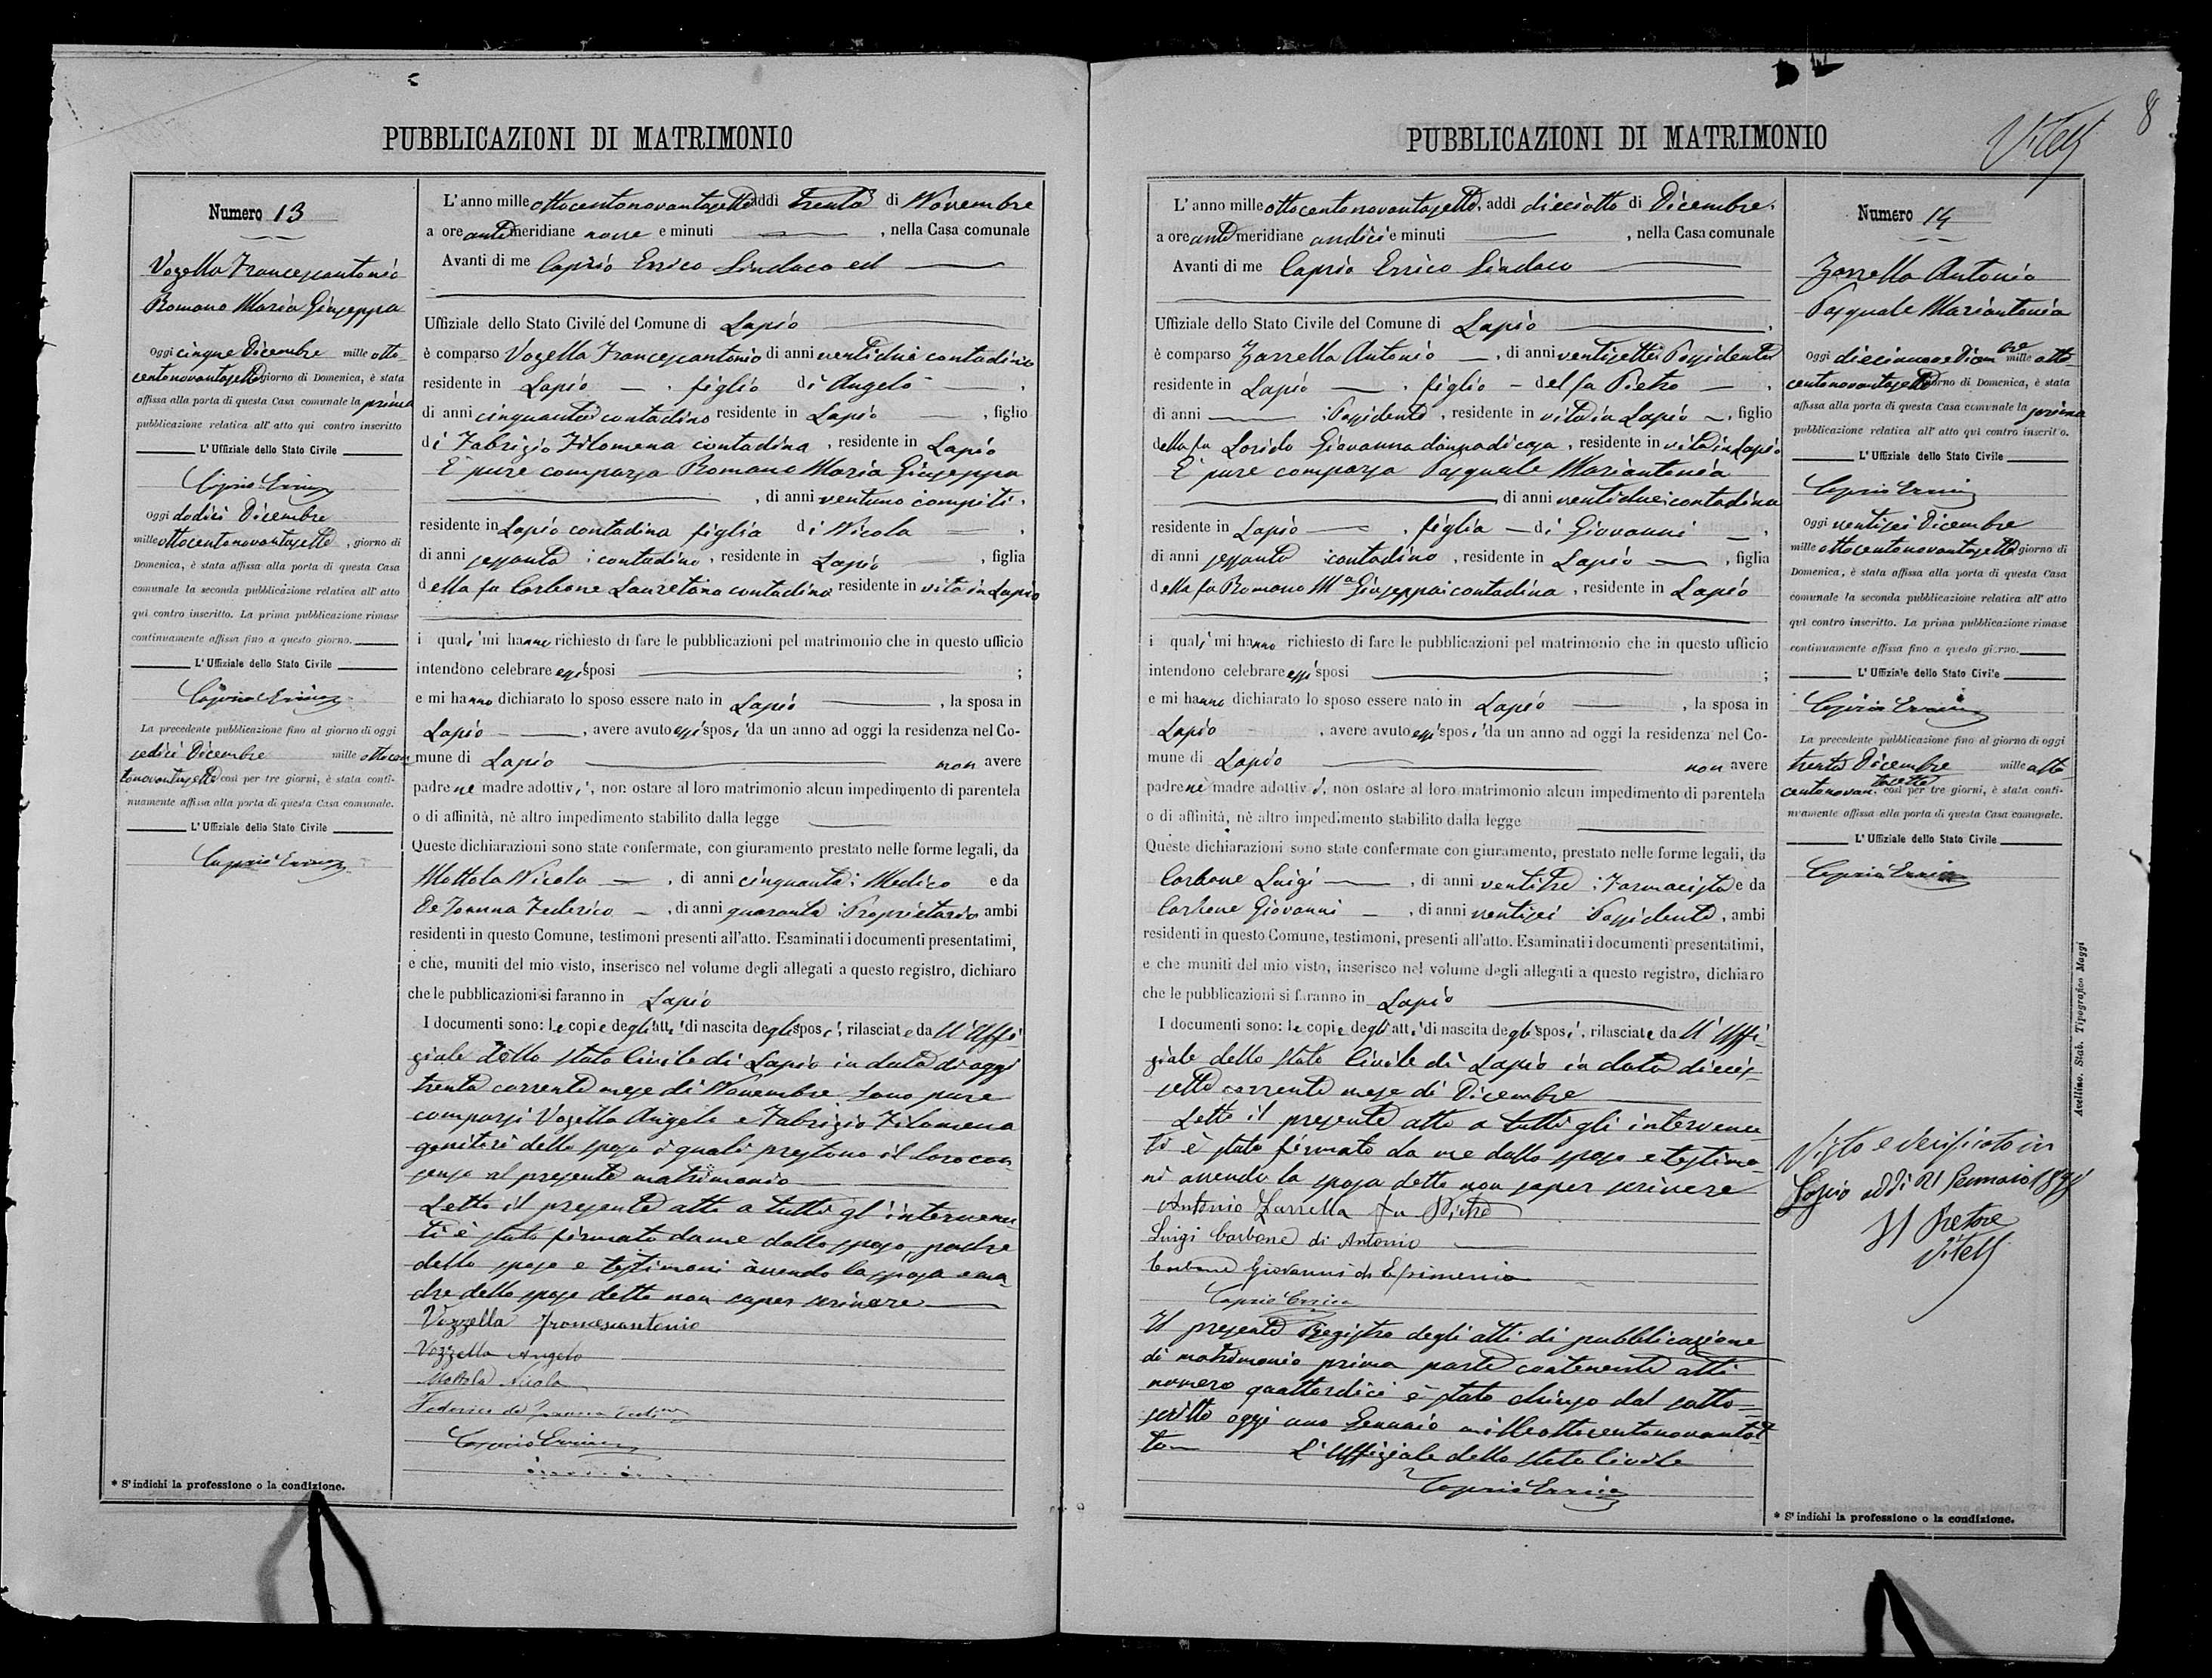 PUBBLICAZIONI DI MATRIMONIO
Numero 13
Vozella Francescantonio
Romano Maria Giuseppa
Oggi cinque Dicembre mille otto
centonovantasette giorno di Domenica, è stata
affissa alla porta di questa Casa comunale la prima
pubblicazione relativa all'atto qui contro inscritto
L'Uffiziale dello Stato Civile
Caprio Errico
Oggi dodici Dicembre
mille ottocentonovantasette, giorno di
Domenica, è stata affissa alla porta di questa Casa
comunale la seconda pubblicazione relativa all'atto
qui contro inscritto. La prima pubblicazione rimase
continuamente affissa fino a questo giorno.
L'Uffiziale dello Stato Civile
Caprio Errico
La precedente pubblicazione fino al giorno di oggi
sedici Dicembre mille ottocen
tonovantasette così per tre giorni, è stata conti-
nuamente affissa alla porta di questa Casa comunale.
L'Uffiziale dello Stato Civile
Caprio Errico
* S'indichi la professione o la condizione.
L'anno mille ottocentonovantasette addì trenta di Novembre
a ore antimeridiane nove e minuti , nella Casa comunale
Avanti di me Caprio Errico Sindaco ed
Uffiziale dello Stato Civile del Comune di Lapio
è comparso Vozella Francescantonio di anni ventidue contadino
residente in Lapio , figlio di Angelo ,
di anni cinquanta contadino residente in Lapio , figlio
di Fabrizio Filomena contadina , residente in Lapio
È pure comparsa Romano Maria Giuseppa
, di anni ventuno compiti,
residente in Lapio contadina figlia di Nicola ,
di anni sessanta contadino, residente in Lapio , figlia
della fu Carbone Lauretana contadina residente in vita in Lapio
i quali mi hanno richiesto di fare le pubblicazioni pel matrimonio che in questo ufficio
intendono celebrare essi sposi ;
e mi hanno dichiarato lo sposo essere nato in Lapio , la sposa in
Lapio , avere avuto essi sposi da un anno ad oggi la residenza nel Co-
mune di Lapio non avere
padre nè madre adottivi, non ostare al loro matrimonio alcun impedimento di parentela
o di affinità, nè altro impedimento stabilito dalla legge
Queste dichiarazioni sono state confermate, con giuramento prestato nelle forme legali, da
Mottola Nicola , di anni cinquanta Medico e da
De Joanna Federico , di anni quaranta Proprietario ambi
residenti in questo Comune, testimoni presenti all'atto. Esaminati i documenti presentatimi,
e che, muniti del mio visto, inserisco nel volume degli allegati a questo registro, dichiaro
che le pubblicazioni si faranno in Lapio
I documenti sono: le copie degli atti di nascita degli sposi, rilasciate da ll'Uffi
ziale dello stato Civile di Lapio in data di oggi
trenta corrente mese di Novembre. Sono pure
comparsi Vozella Angelo e Fabrizio Filomena
genitori dello sposo i quali prestono il loro con
senso al presente matrimonio
Letto il presente atto a tutti gl'intervenu
ti è stato firmato da me dallo sposo, padre
dello sposo e testimoni avendo la sposa e ma
dre dello sposo detto non saper scrivere
Vozzella Francescantonio
Vozzella Angelo
Mottola Nicola
Federico de Joanna
Caprio Errico
PUBBLICAZIONI DI MATRIMONIO
Vitelli
8
L'anno mille ottocentonovantasette, addì dieciotto di Dicembre,
a ore antimeridiane undici e minuti , nella Casa comunale
Avanti di me Caprio Errico Sindaco
Uffiziale dello Stato Civile del Comune di Lapio ,
è comparso Zarrella Antonio , di anni ventisette Possidente
residente in Lapio , figlio del fu Pietro ,
di anni Possidente, residente in vita in Lapio , figlio
della fu Lorido Giovanna donna di casa, residente in vita in Lapio
È pure comparsa Pasquale Mariantonia
di anni ventidue contadina
residente in Lapio , figlia di Giovanni ,
di anni sessanta contadino, residente in Lapio , figlia
della fu Romano Mª Giuseppa contadina, residente in Lapio
i quali mi hanno richiesto di fare le pubblicazioni pel matrimonio che in questo ufficio
intendono celebrare essi sposi ;
e mi hanno dichiarato lo sposo essere nato in Lapio , la sposa in
Lapio , avere avuto essi sposi da un anno ad oggi la residenza nel Co-
mune di Lapio non avere
padre nè madre adottivi, non ostare al loro matrimonio alcun impedimento di parentela
o di affinità, nè altro impedimento stabilito dalla legge
Queste dichiarazioni sono state confermate con giuramento, prestato nelle forme legali, da
Carbone Luigi , di anni ventitre Farmacista e da
Carbone Giovanni , di anni ventisei Possidente, ambi
residenti in questo Comune, testimoni, presenti all'atto. Esaminati i documenti presentatimi,
e che muniti del mio visto, inserisco nel volume degli allegati a questo registro, dichiaro
che le pubblicazioni si faranno in Lapio
I documenti sono: le copie degli atti di nascita degli sposi, rilasciate da ll'Uffi-
ziale dello stato Civile di Lapio in data dicias-
sette corrente mese di Dicembre
Letto il presente atto a tutti gli intervenu-
ti è stato firmato da me dallo sposo e testimo-
ni avendo la sposa detto non saper scrivere
Antonio Zarrella fu Pietro
Luigi Carbone di Antonio
Carbone Giovanni di Epimenio
Caprio Errico
Il presente Registro degli atti di pubblicazione
di matrimonio prima parte contenente atti
numero quattordici è stato chiuso dal sotto-
scritto oggi uno Gennaio milleottocentonovantot
to L'Uffiziale dello stato Civile
Caprio Errico
Numero 14
Zarrella Antonio
Pasquale Mariantonia
Oggi diecinnove Dicembre mille otto-
centonovantasette giorno di Domenica, è stata
affissa alla porta di questa Casa comunale la prima
pubblicazione relativa all'atto qui contro inscritto.
L'Uffiziale dello Stato Civile
Caprio Errico
Oggi ventisei Dicembre
mille ottocentonovantasette giorno di
Domenica, è stata affissa alla porta di questa Casa
comunale la seconda pubblicazione relativa all'atto
qui contro inscritto. La prima pubblicazione rimase
continuamente affissa fino a questo giorno.
L'Uffiziale dello Stato Civile
Caprio Errico
La precedente pubblicazione fino al giorno di oggi
trenta Dicembre mille otto
centonovantasette, così per tre giorni, è stata conti-
nuamente affissa alla porta di questa Casa comunale.
L'Uffiziale dello Stato Civile
Caprio Errico
Visto e verificato in
Lapio addì 21 Gennaio 1898
Il Pretore
Vitelli
Avellino. Stab. Tipografico Maggi
* S'indichi la professione o la condizione.